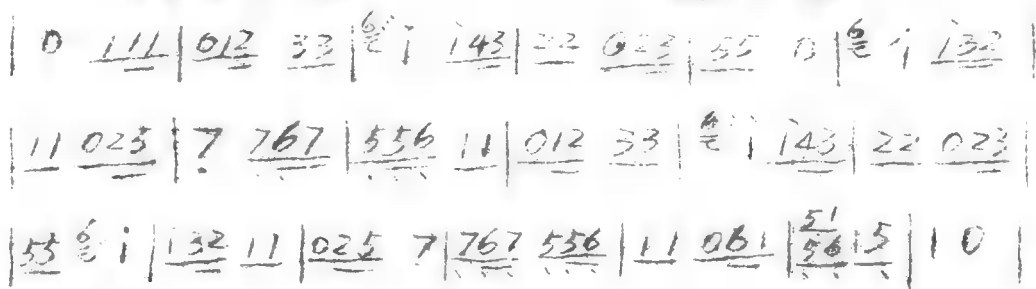 | 0 111 | 012 33 | 6 i i43 | 22 023 | 55 0 | 6 i i32 |
| 11 025 | 7 767 | 556 11 | 012 33 | i i43 | 22 023 |
| 55 6 i | i32 11 | 025 7 | 767 556 | 11 061 | 51 56 5 | 1 0 |